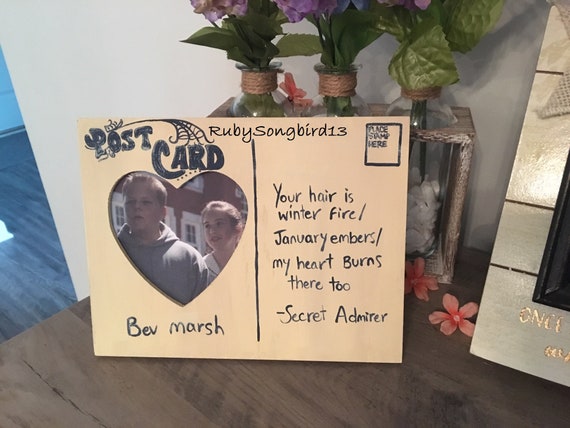 RubySongbird13
POST
CARD
PLACE
STAMP
HERE
Your hair is
winter fire/
January embers/
my heart Burns
there too
-Secret Admirer
Bev marsh
ONCE